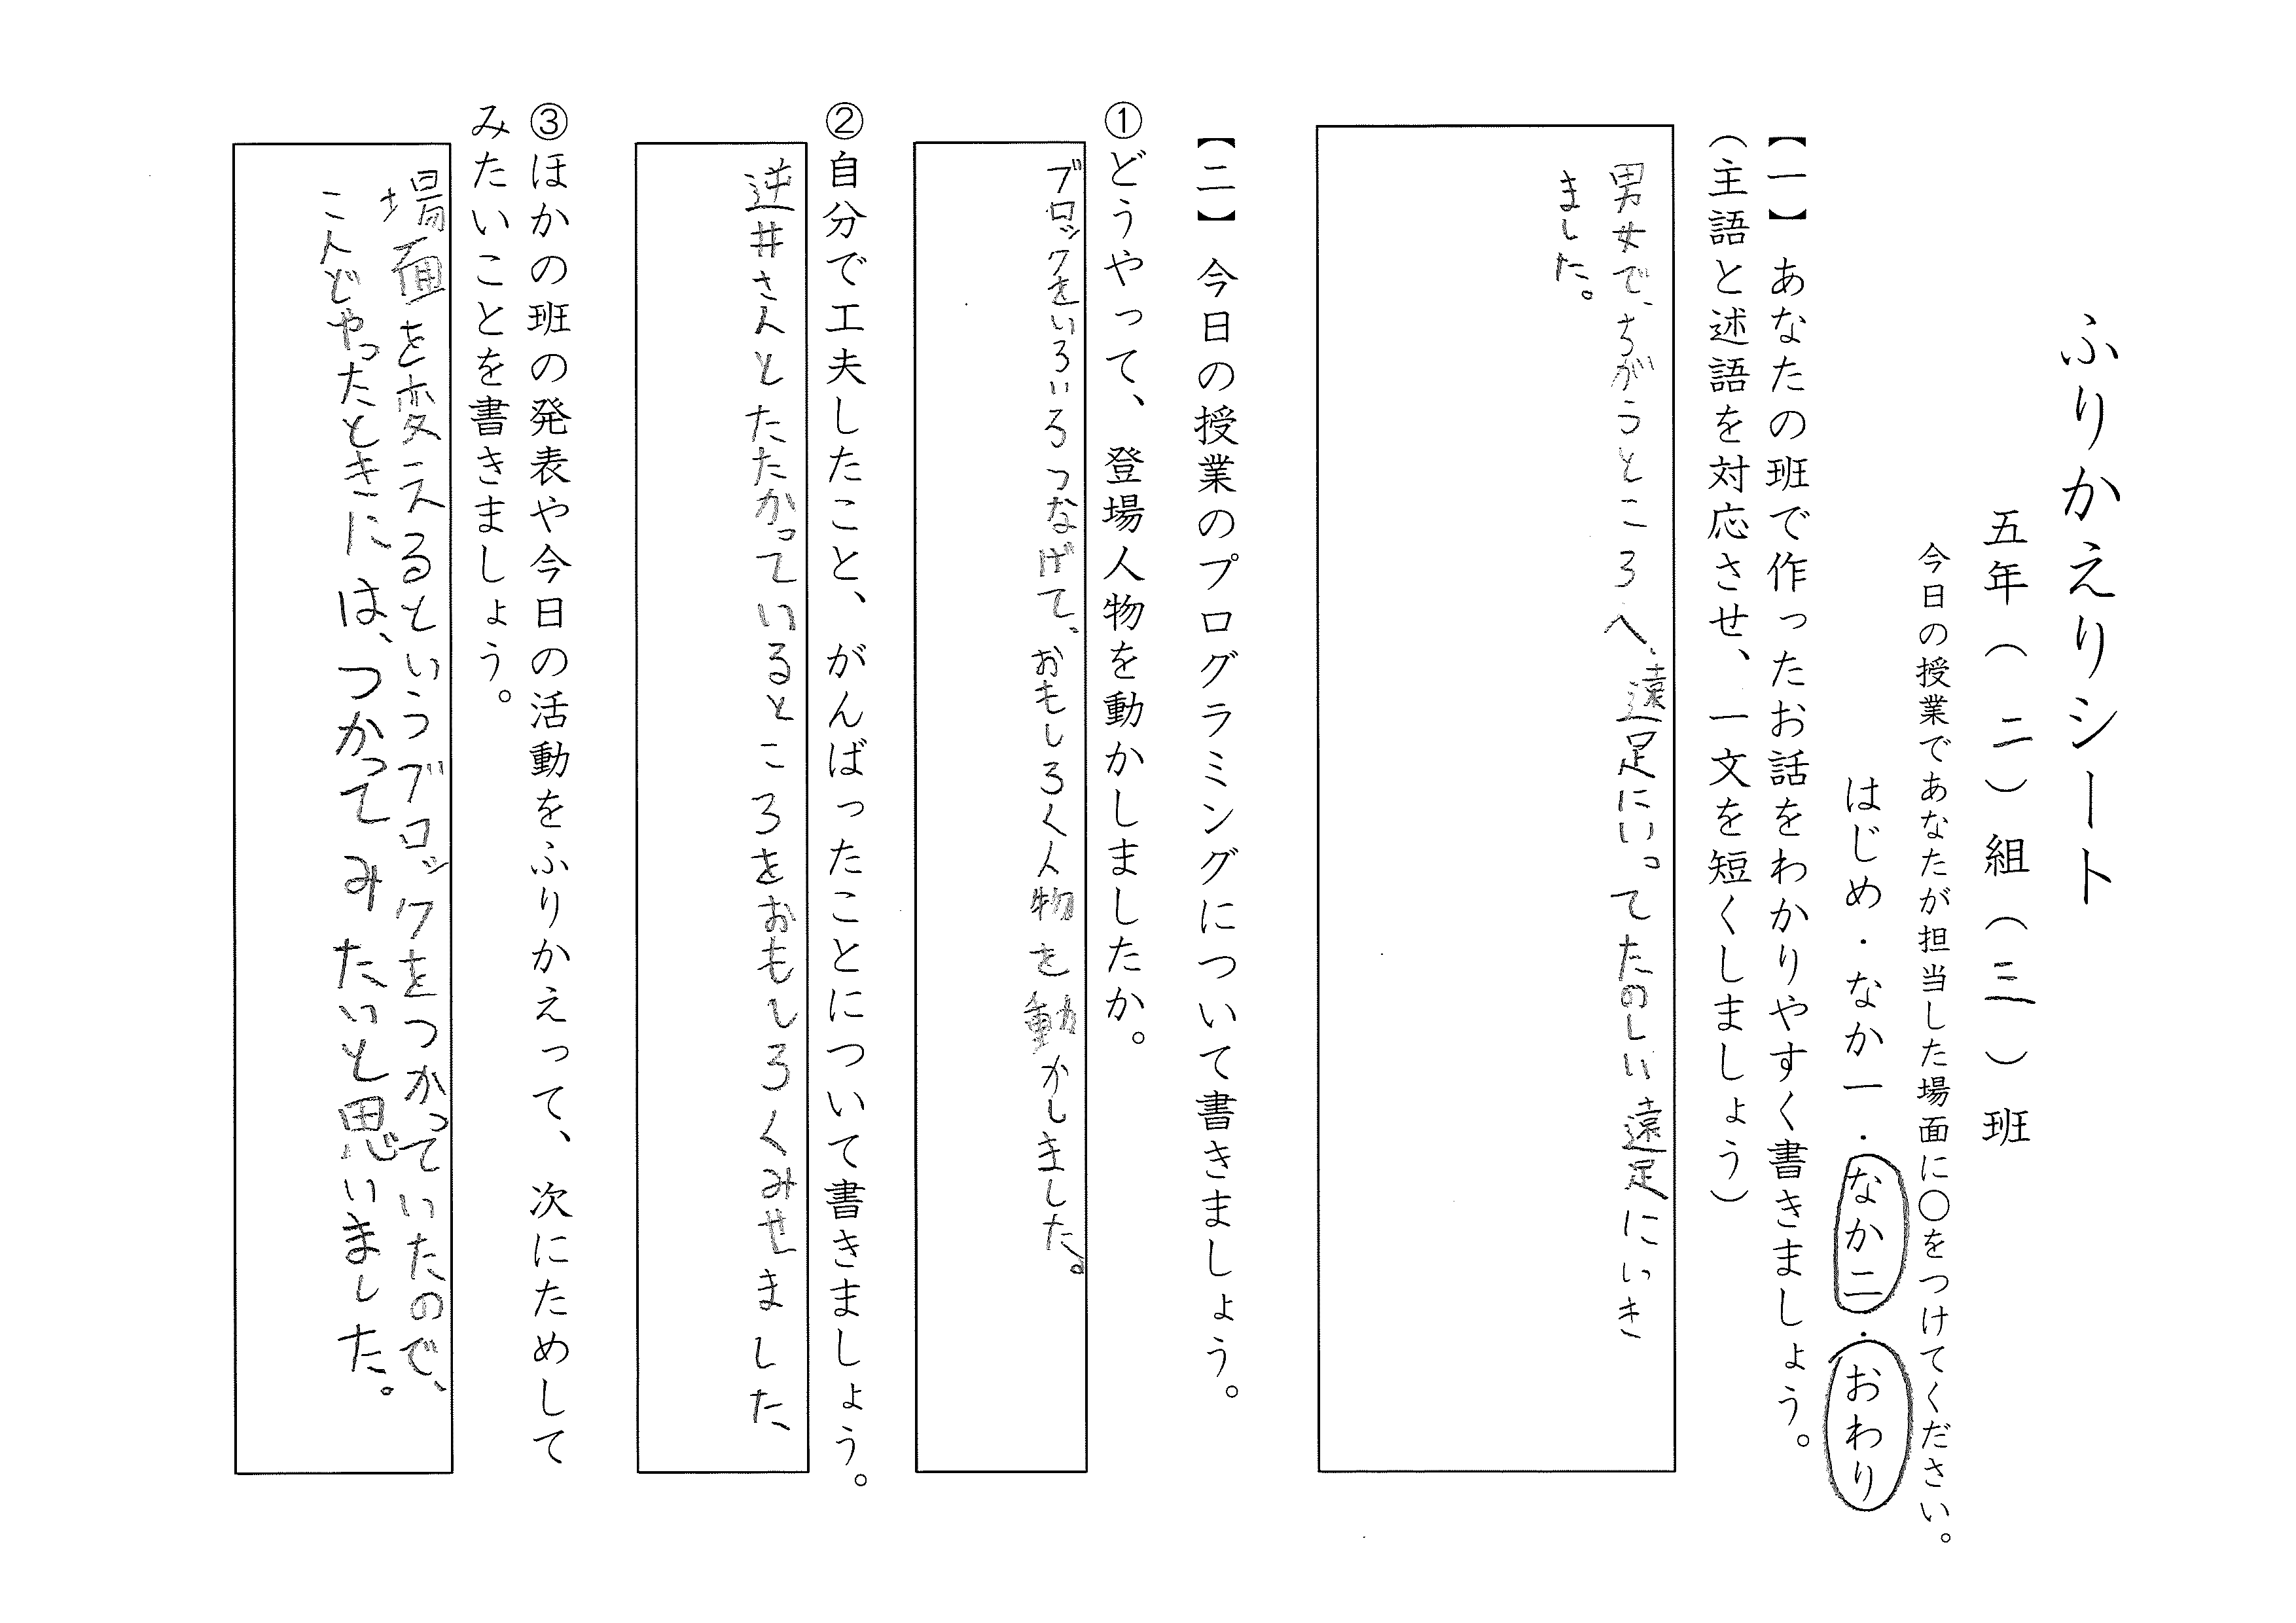 ふりかえりシート
五年（二）組（三）班
今日の授業であなたが担当した場面に○をつけてください。
はじめ・なか一・なか二・おわり
【一】あなたの班で作ったお話をわかりやすく書きましょう。
（主語と述語を対応させ、一文を短くしましょう）
男女で、ちがうところへ、遠足にいってたのしい遠足にいき
ました。
【二】今日の授業のプログラミングについて書きましょう。
①どうやって、登場人物を動かしましたか。
ブロックをいろいろつなげて、おもしろく人物を動かしました。
②自分で工夫したこと、がんばったことについて書きましょう。
逆井さんとたたかっているところをおもしろくみせました、
③ほかの班の発表や今日の活動をふりかえって、次にためして
みたいことを書きましょう。
場面を変えるというブロックをつかっていたので、
こんどやったときには、つかってみたいと思いました。